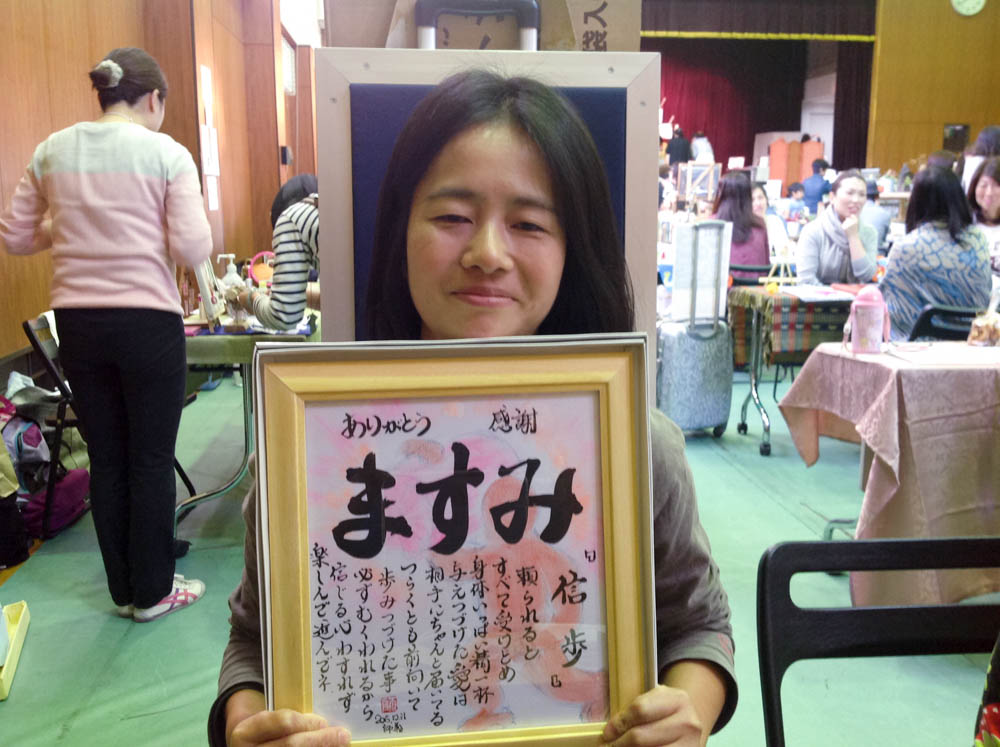 ありがとう
感謝
ますみ
『信歩』
頼られると
すべて受けとめ
身体いっぱい精一杯
与えつづけた愛は
相手にちゃんと届いてる
つらくとも前向いて
歩みつづけた事
必ずむくわれるから
信じる心わすれず
楽しんで進んでネ
2015.12.11